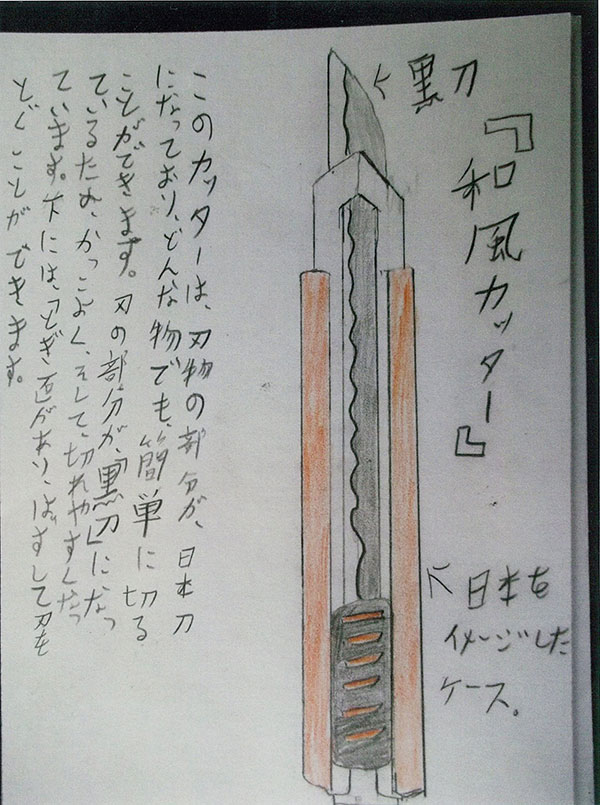 『和風カッター』
黒刀
日本を
イメージした
ケース。
このカッターは、刃物の部分が、日本刀
になっており、どんな物でも、簡単に切る
ことができます。刃の部分が、「黒刀」になっ
ているため、かっこよく、そして、切れやすくなっ
ています。下には、「とぎ石」があり、はずして刃を
とぐことができます。